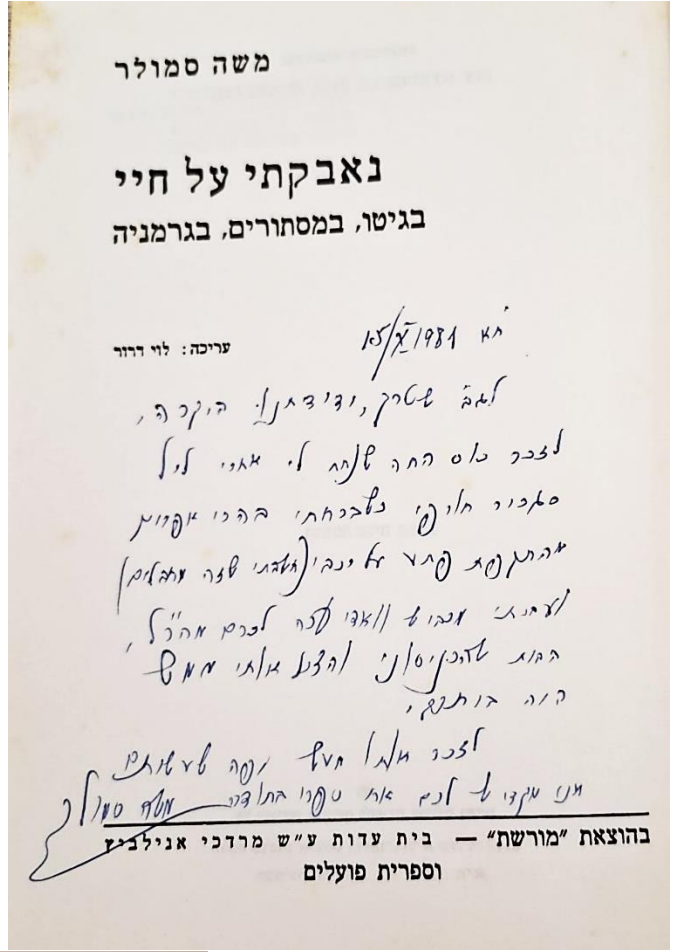 משה סמולר
נאבקתי על חיי
בגיטו, במסתורים, בגרמניה
עריכה: לוי דרור
לגב' שטרק, ידידתנו היקרה,
לזכר כוס התה שנתת לי אחרי ליל
סגריר חורפי כשברחתי בהרי אפרים
מהתקפת פתע על רכבי (חשבתי שזה מחבלים)
מכביש וואדי עזה לכרם מהר"ל,
הבית שהכניסוני והצילו אותי ממש
היה
לזכר אותו מעשה יפה שעשיתם
הנני מקדיש לכם את ספרי בתודה משה סמולר
בהוצאת "מורשת" — בית עדות ע"ש מרדכי אנילביץ
וספרית פועלים